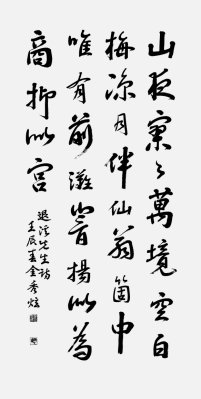 山夜寥々萬境空白
梅凉月伴仙翁箇中
唯有前灘響揚似為
商抑似宮
退溪先生詩
壬辰 金秀炫